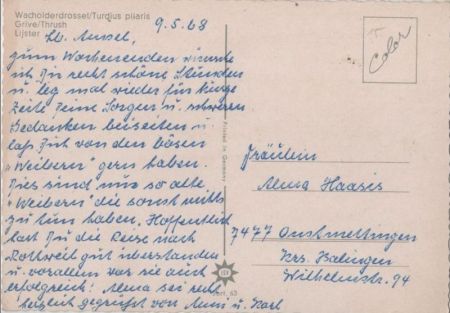 Wacholderdrossel/Turdus pilaris
Grive/Thrush
Lijster
9.5.68
Lb. Amsel,
zum Wochenenden wünsche
ich Dir recht schöne Stunden
u. leg mal wieder für kurze
Zeite Deine Sorgen u. schweren
Gedanken beiseiten u.
laß Dich von den bösen
"Weibern" gern haben.
Dies sind nur so alte
"Weibern" die sonst nichts
zu tun haben. Hoffentlich
hast Du die Reise nach
Rottweil gut überstanden
u. vorallem war sie auch
erfolgreich! Alma sei recht
herzlich gegrüßt von Anni u. Karl
Printed in Germany
Color
Fräulein
Alma Haasis
7477 Onstmettingen
Krs. Balingen
Wilhelmstr. 94
63